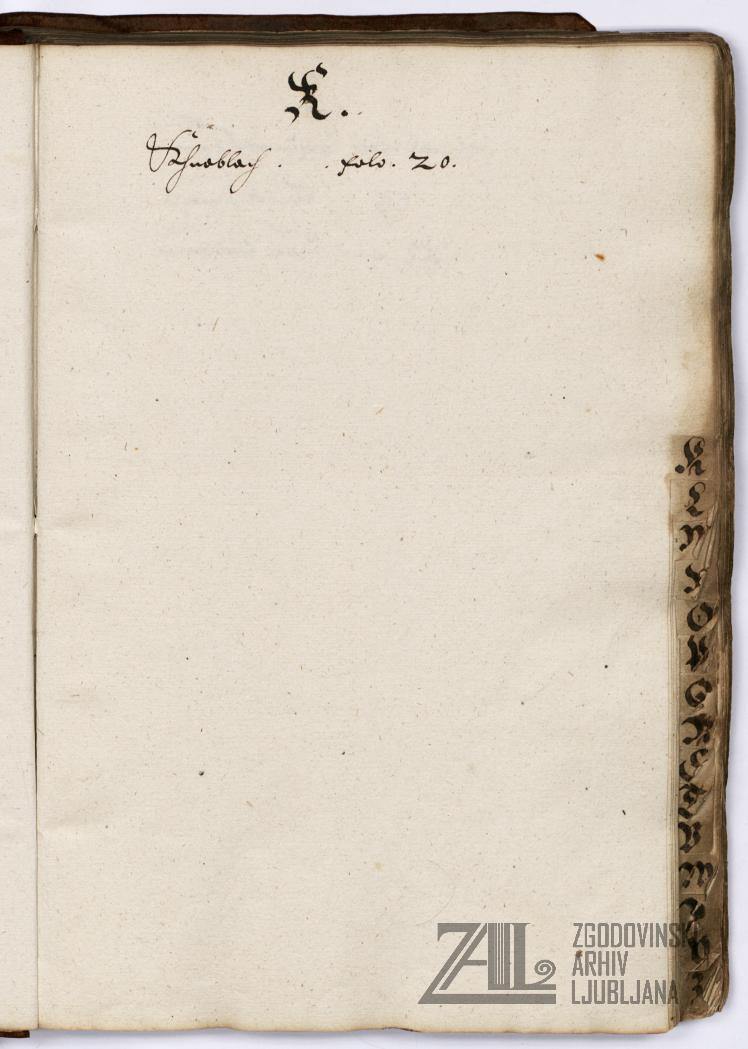 K.
Khnoblach . . folo. 20.
K
L
M
N
O
P
Q
R
S
T
V
W
X
Y
Z
ZAL ZGODOVINSKI
ARHIV
LJUBLJANA